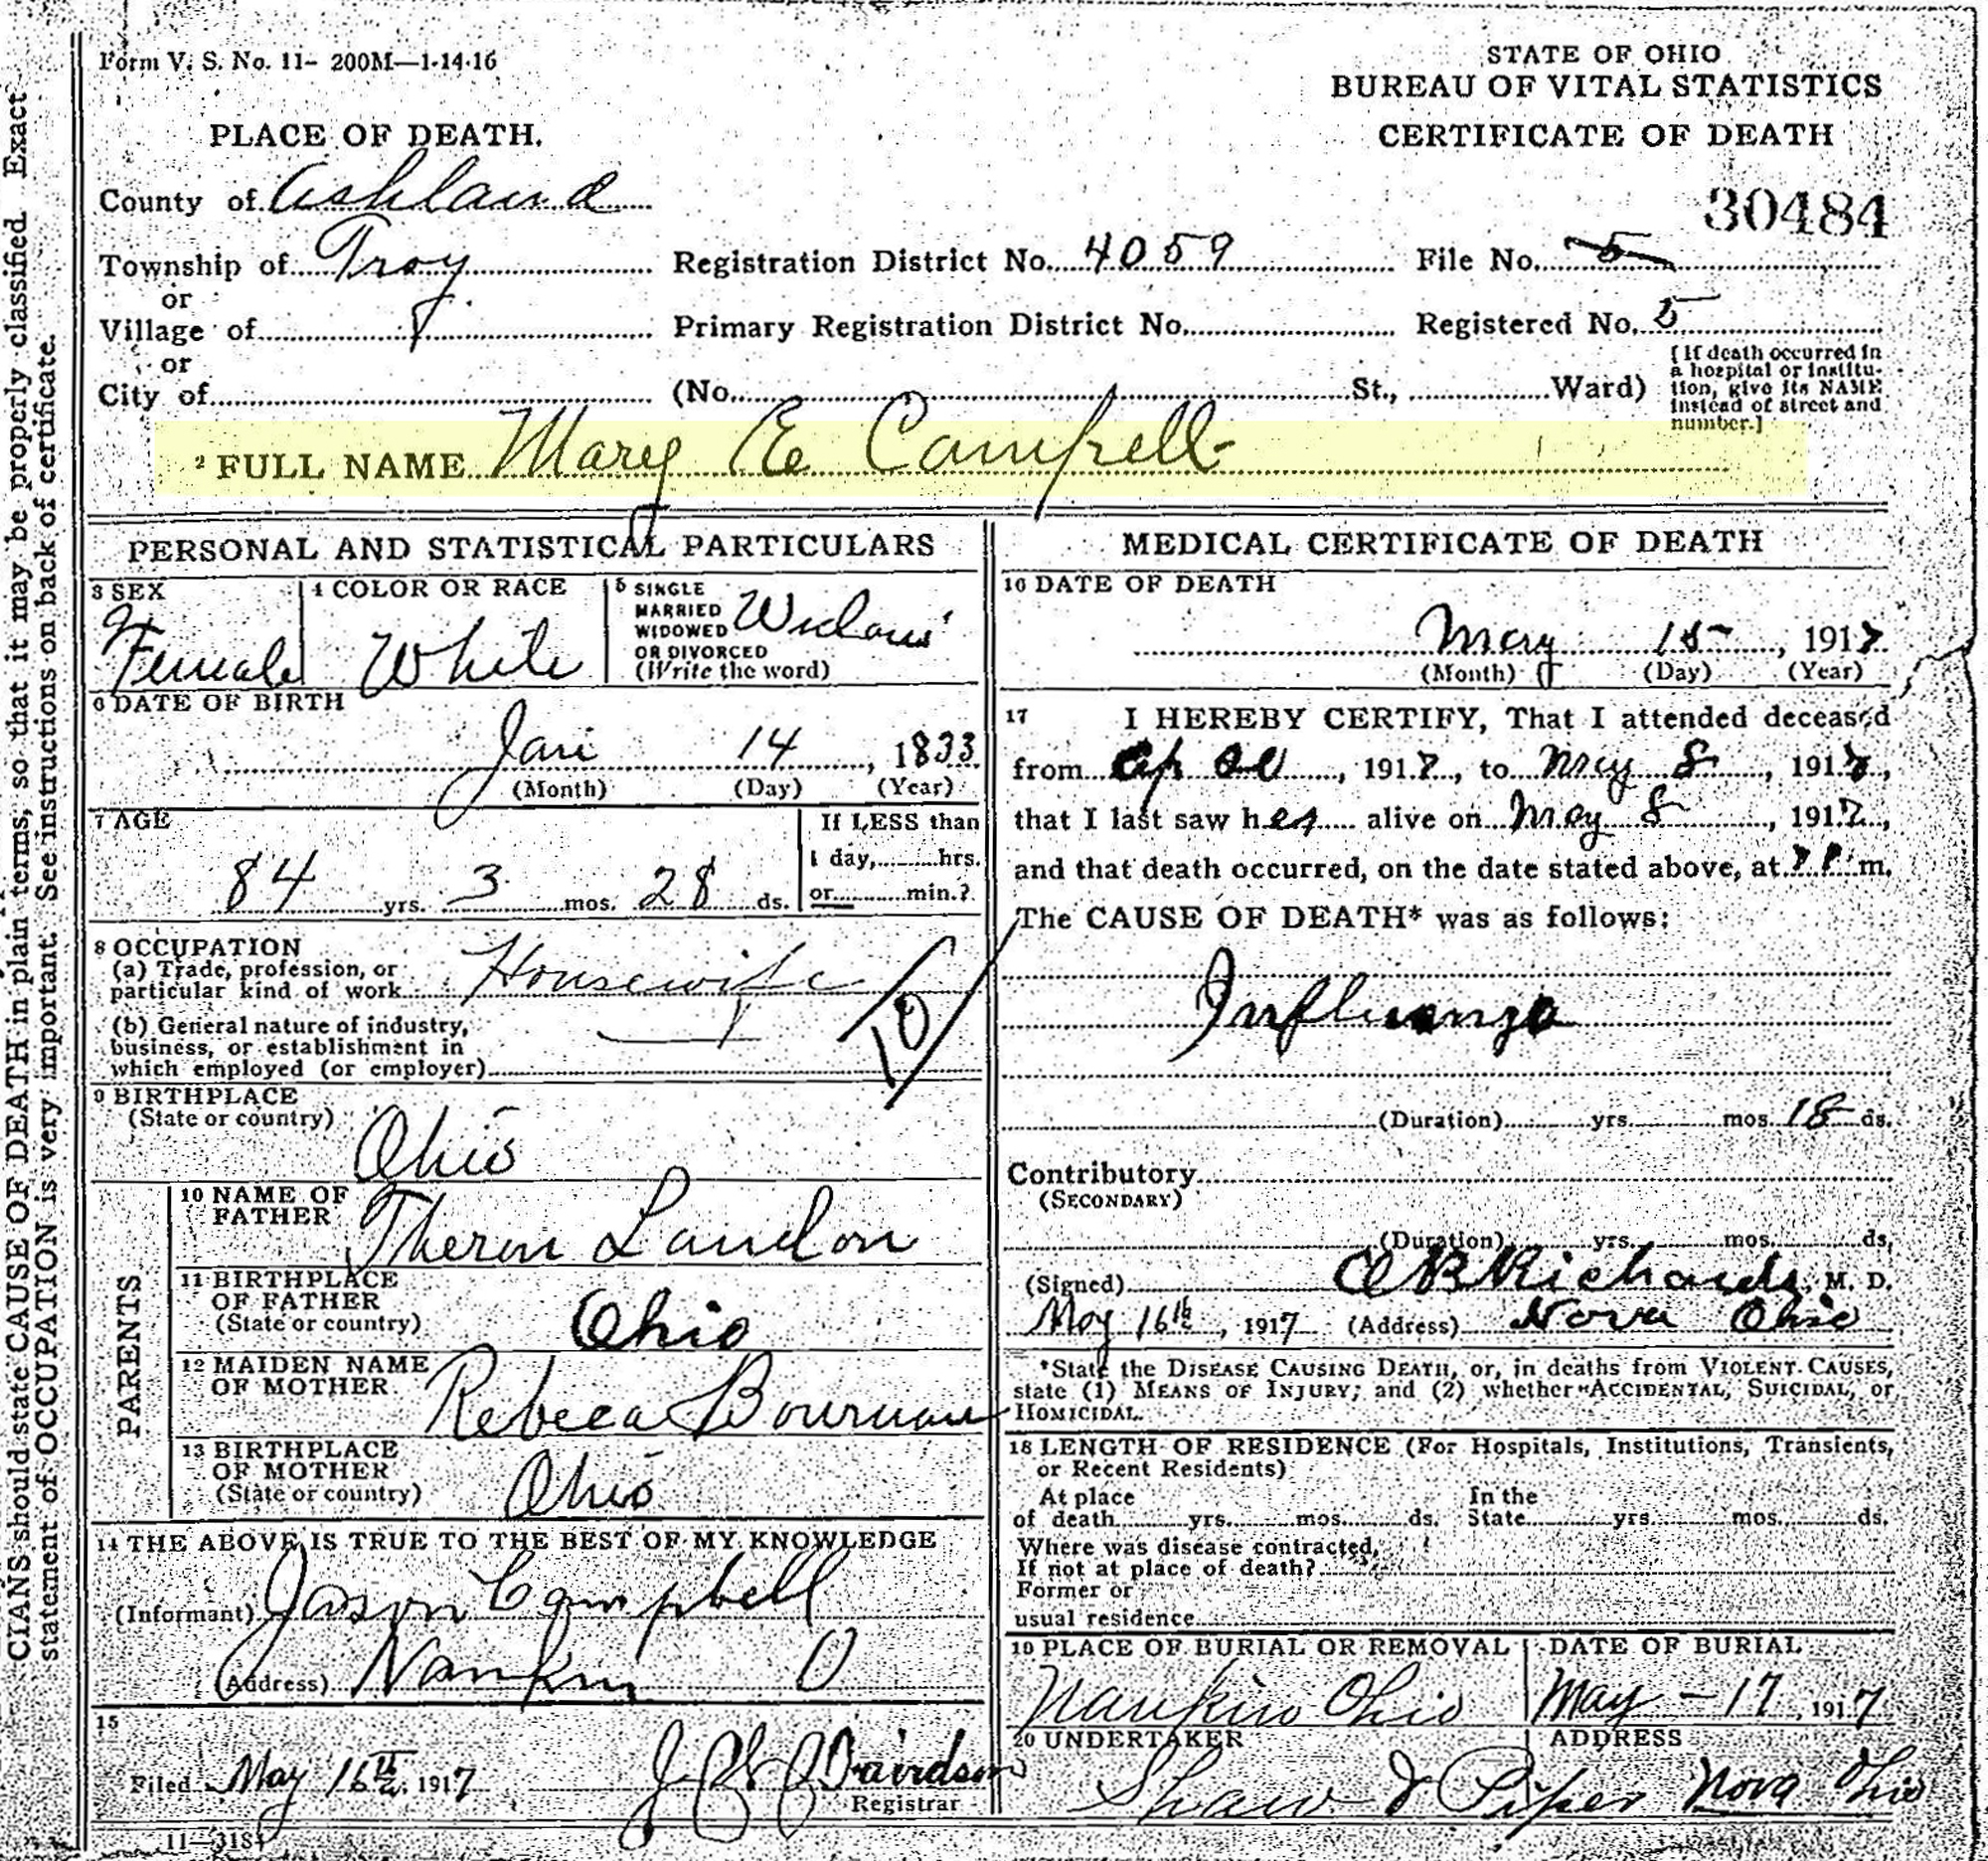 Form V. S. No. 11- 200M—1-14-16
STATE OF OHIO
BUREAU OF VITAL STATISTICS
CERTIFICATE OF DEATH
PLACE OF DEATH.
County of Ashland
30484
Township of Troy Registration District No. 4059 File No. 5
or
Village of Primary Registration District No. Registered No. 5
or
City of (No. St., Ward)
[If death occurred in
a hospital or institu-
tion, give its NAME
instead of street and
number.]
2 FULL NAME Mary E Campbell
PERSONAL AND STATISTICAL PARTICULARS
3 SEX Female
4 COLOR OR RACE White
5 SINGLE
MARRIED
WIDOWED
OR DIVORCED
(Write the word)
Widow
6 DATE OF BIRTH
Jan 14, 1833
(Month) (Day) (Year)
7 AGE
84 yrs. 3 mos. 28 ds.
If LESS than
1 day, hrs.
or min.?
8 OCCUPATION
(a) Trade, profession, or
particular kind of work Housewife
(b) General nature of industry,
business, or establishment in
which employed (or employer)
10
9 BIRTHPLACE
(State or country)
Ohio
PARENTS
10 NAME OF
FATHER
Theron Landon
11 BIRTHPLACE
OF FATHER
(State or country)
Ohio
12 MAIDEN NAME
OF MOTHER
Rebeca Bowman
13 BIRTHPLACE
OF MOTHER
(State or country)
Ohio
14 THE ABOVE IS TRUE TO THE BEST OF MY KNOWLEDGE
(Informant) Jason Campbell
(Address) Nankin O
15
Filed May 16th 1917
Davidson
Registrar
11—3184
MEDICAL CERTIFICATE OF DEATH
16 DATE OF DEATH
May 15, 1917
(Month) (Day) (Year)
17 I HEREBY CERTIFY, That I attended deceased
from Ap , 1917, to May 8, 1917,
that I last saw her alive on May 8, 1917,
and that death occurred, on the date stated above, at m.
The CAUSE OF DEATH* was as follows:
Influenza
(Duration) yrs. mos. 18 ds.
Contributory
(SECONDARY)
(Duration) yrs. mos. ds.
(Signed) Richards, M. D.
May 16th, 1917 (Address) Nova Ohio
*State the DISEASE CAUSING DEATH, or, in deaths from VIOLENT CAUSES,
state (1) MEANS OF INJURY; and (2) whether ACCIDENTAL, SUICIDAL, or
HOMICIDAL.
18 LENGTH OF RESIDENCE (For Hospitals, Institutions, Transients,
or Recent Residents)
At place
of death yrs. mos. ds.
In the
State yrs. mos. ds.
Where was disease contracted,
If not at place of death?
Former or
usual residence
19 PLACE OF BURIAL OR REMOVAL
Nankin Ohio
DATE OF BURIAL
May - 17, 1917
20 UNDERTAKER
Shaw & Piper
ADDRESS
Nova Ohio
CIANS should state CAUSE OF DEATH in plain terms, so that it may be properly classified. Exact
statement of OCCUPATION is very important. See instructions on back of certificate.